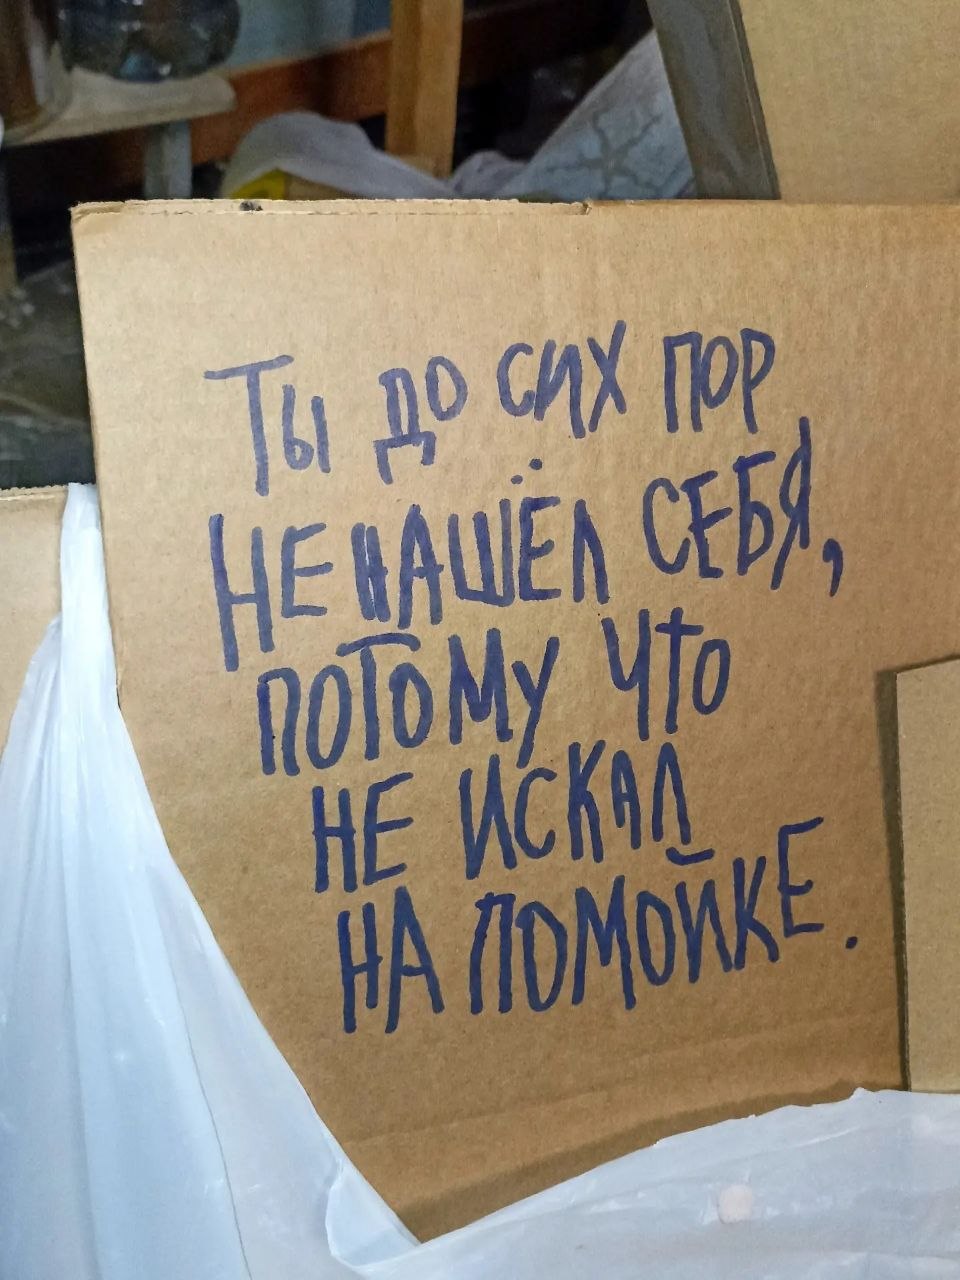 Ты до сих пор
НЕ НАШЁЛ СЕБЯ,
ПОТОМУ ЧТО
НЕ ИСКАЛ
НА ПОМОЙКЕ.